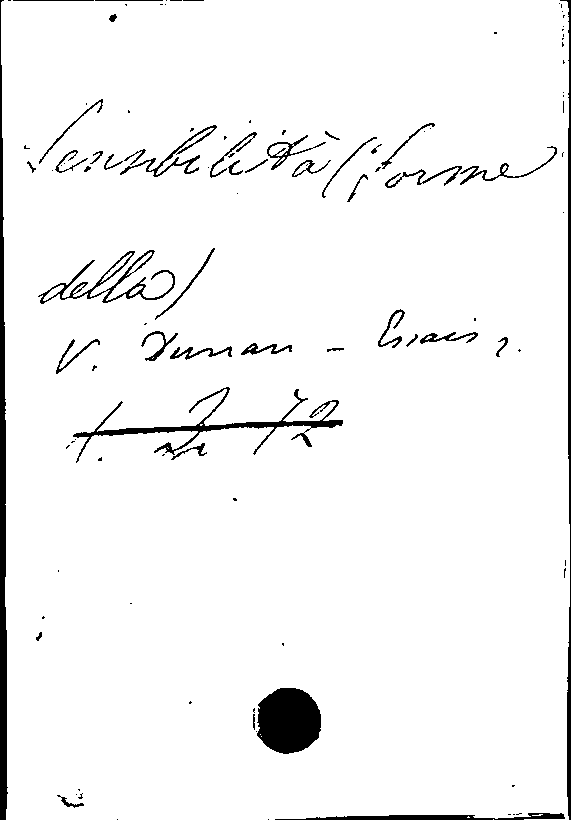 Sensibilità (forme
della)
V. Dunan - Essais